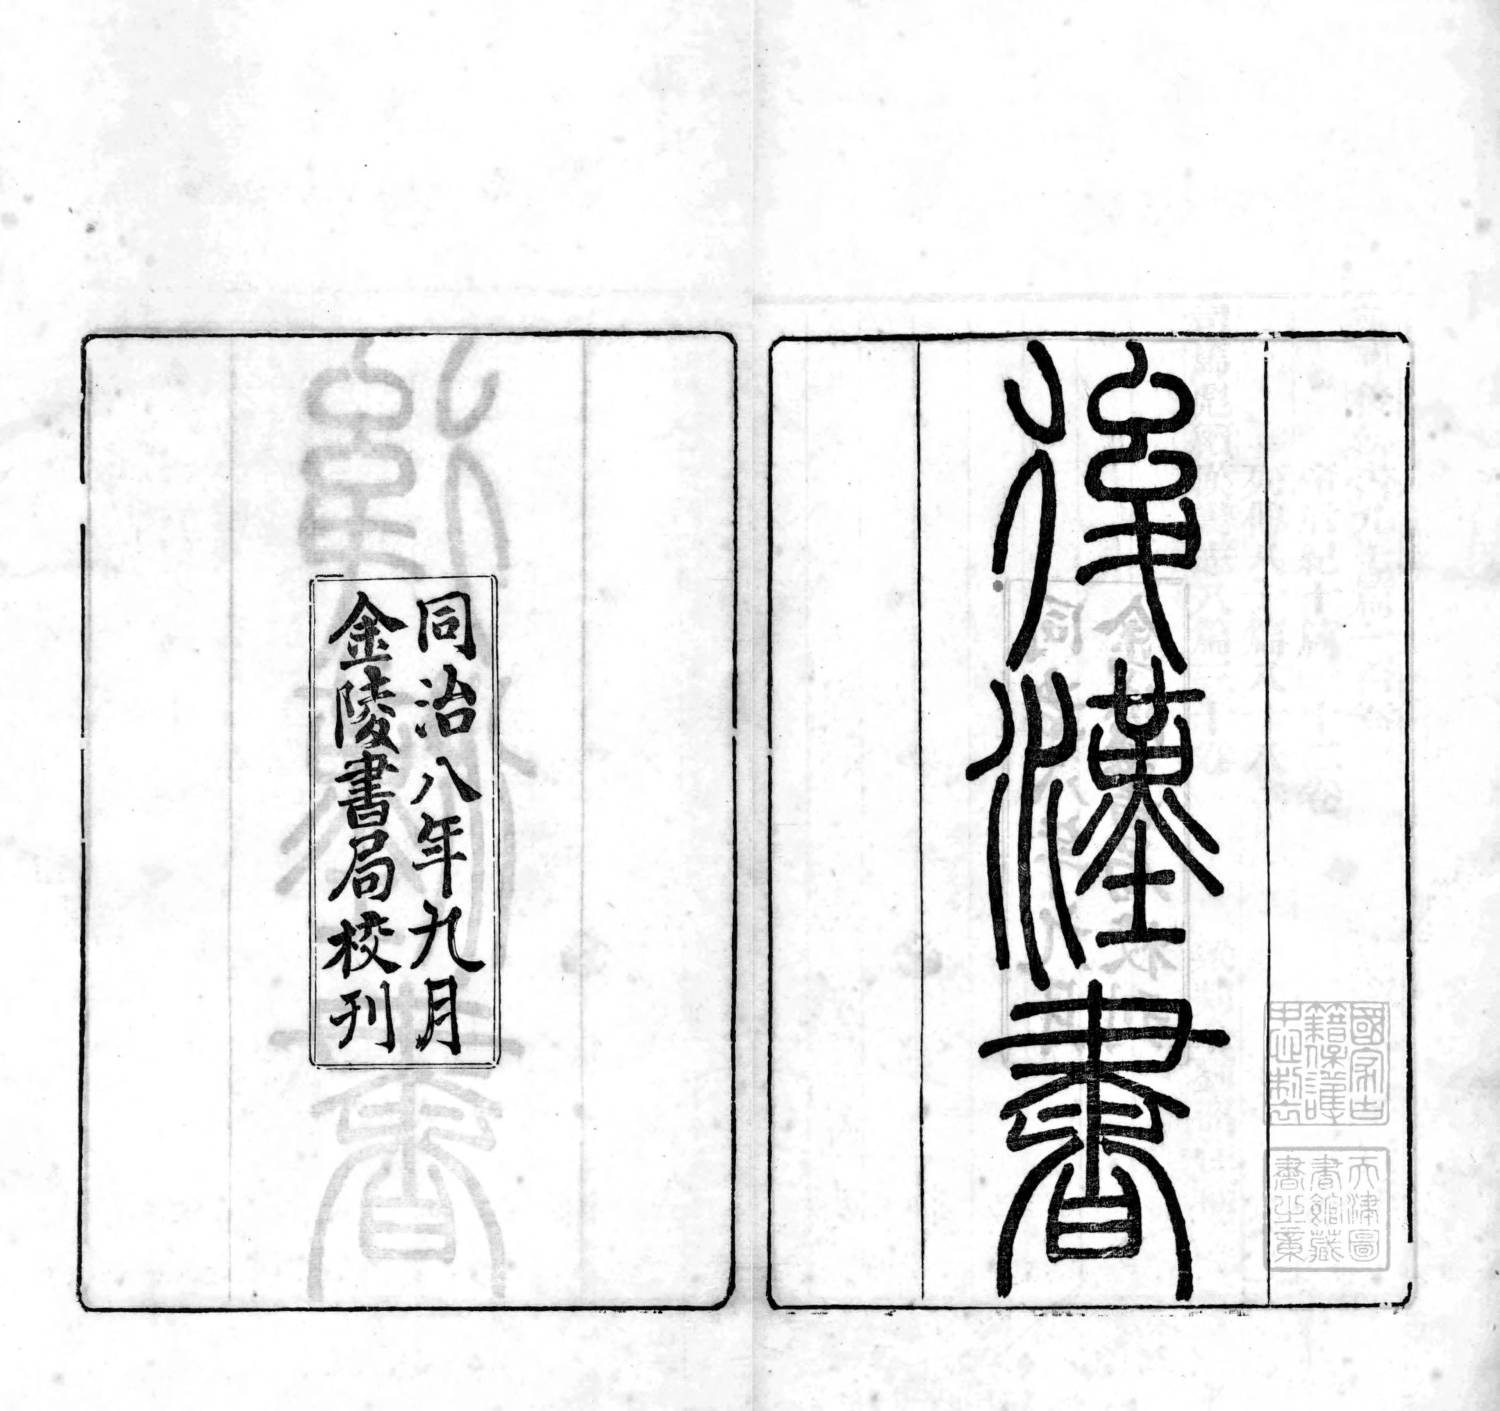 後漢書
國家古
籍保護
中心製
天津圖
書館藏
書之章
同治八年九月
金陵書局校刊